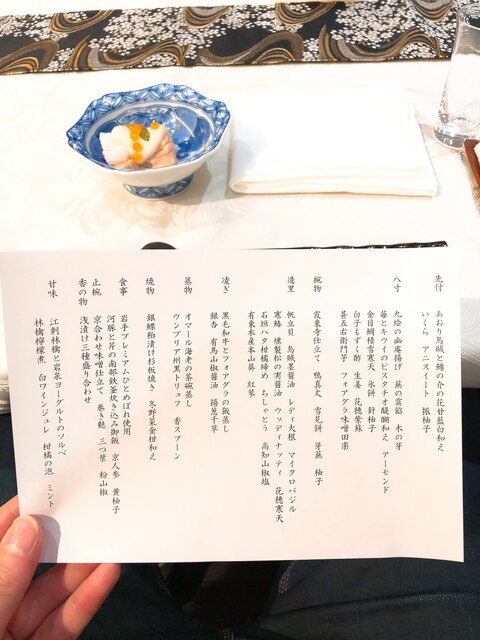 先付
あおり烏賊と鱒の介の花甘藍白和え
いくら　アニスイート　振柚子
八寸
九絵の幽庵揚げ　蕪の霙餡　木の芽
苺とキウイのピスタチオ醍醐和え　アーモンド
金目鯛積雪寒天　氷餅　針柚子
白子もずく酢　生姜　花穂紫蘇
甚五右衛門芋　フォアグラ味噌田楽
椀物
霞東寺仕立て　鴨真丈　雪見餅　芽蕪　柚子
造里
帆立貝　烏賊墨醤油　レディ大根　マイクロバジル
寒鰆　燻製松の実醤油　ウッディナッティ　花穂寒天
石垣ハタ柑橘締め　ちしゃとう　高知山椒塩
有東木産本山葵　紅蓼
凌ぎ
黒毛和牛とフォアグラの飯蒸し
銀杏　有馬山椒醤油　揚葱千草
蒸物
オマール海老の茶碗蒸し
ウンブリア州黒トリュフ　香スプーン
焼物
銀鰈粕漬け杉板焼き　冬野菜金柑和え
食事
岩手プレミアムひとめぼれ使用
河豚と芹の南部鉄釜炊き込み御飯　京人参　黄柚子
止椀
京合わせ味噌仕立て　巻き麩　三つ葉　粉山椒
香の物
浅漬け三種盛り合わせ
甘味
江刺林檎と岩泉ヨーグルトのソルベ
林檎檸檬煮　白ワインジュレ　柑橘の泡　ミント